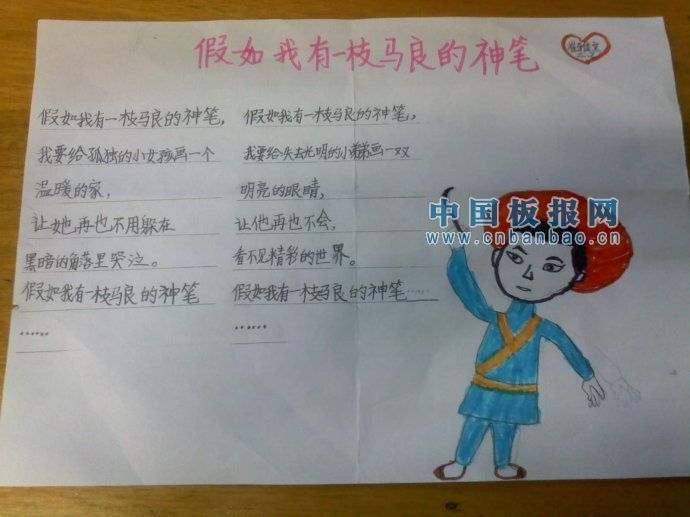 假如我有一枝马良的神笔
假如我有一枝马良的神笔，
我要给孤独的小女孩画一个
温暖的家，
让她再也不用躲在
黑暗的角落里哭泣。
假如我有一枝马良的神笔
……
假如我有一枝马良的神笔，
我要给失去光明的小弟弟画一双
明亮的眼睛，
让他再也不会，
看不见精彩的世界。
假如我有一枝马良的神笔……
……
中国板报网
www.cnbanbao.cn